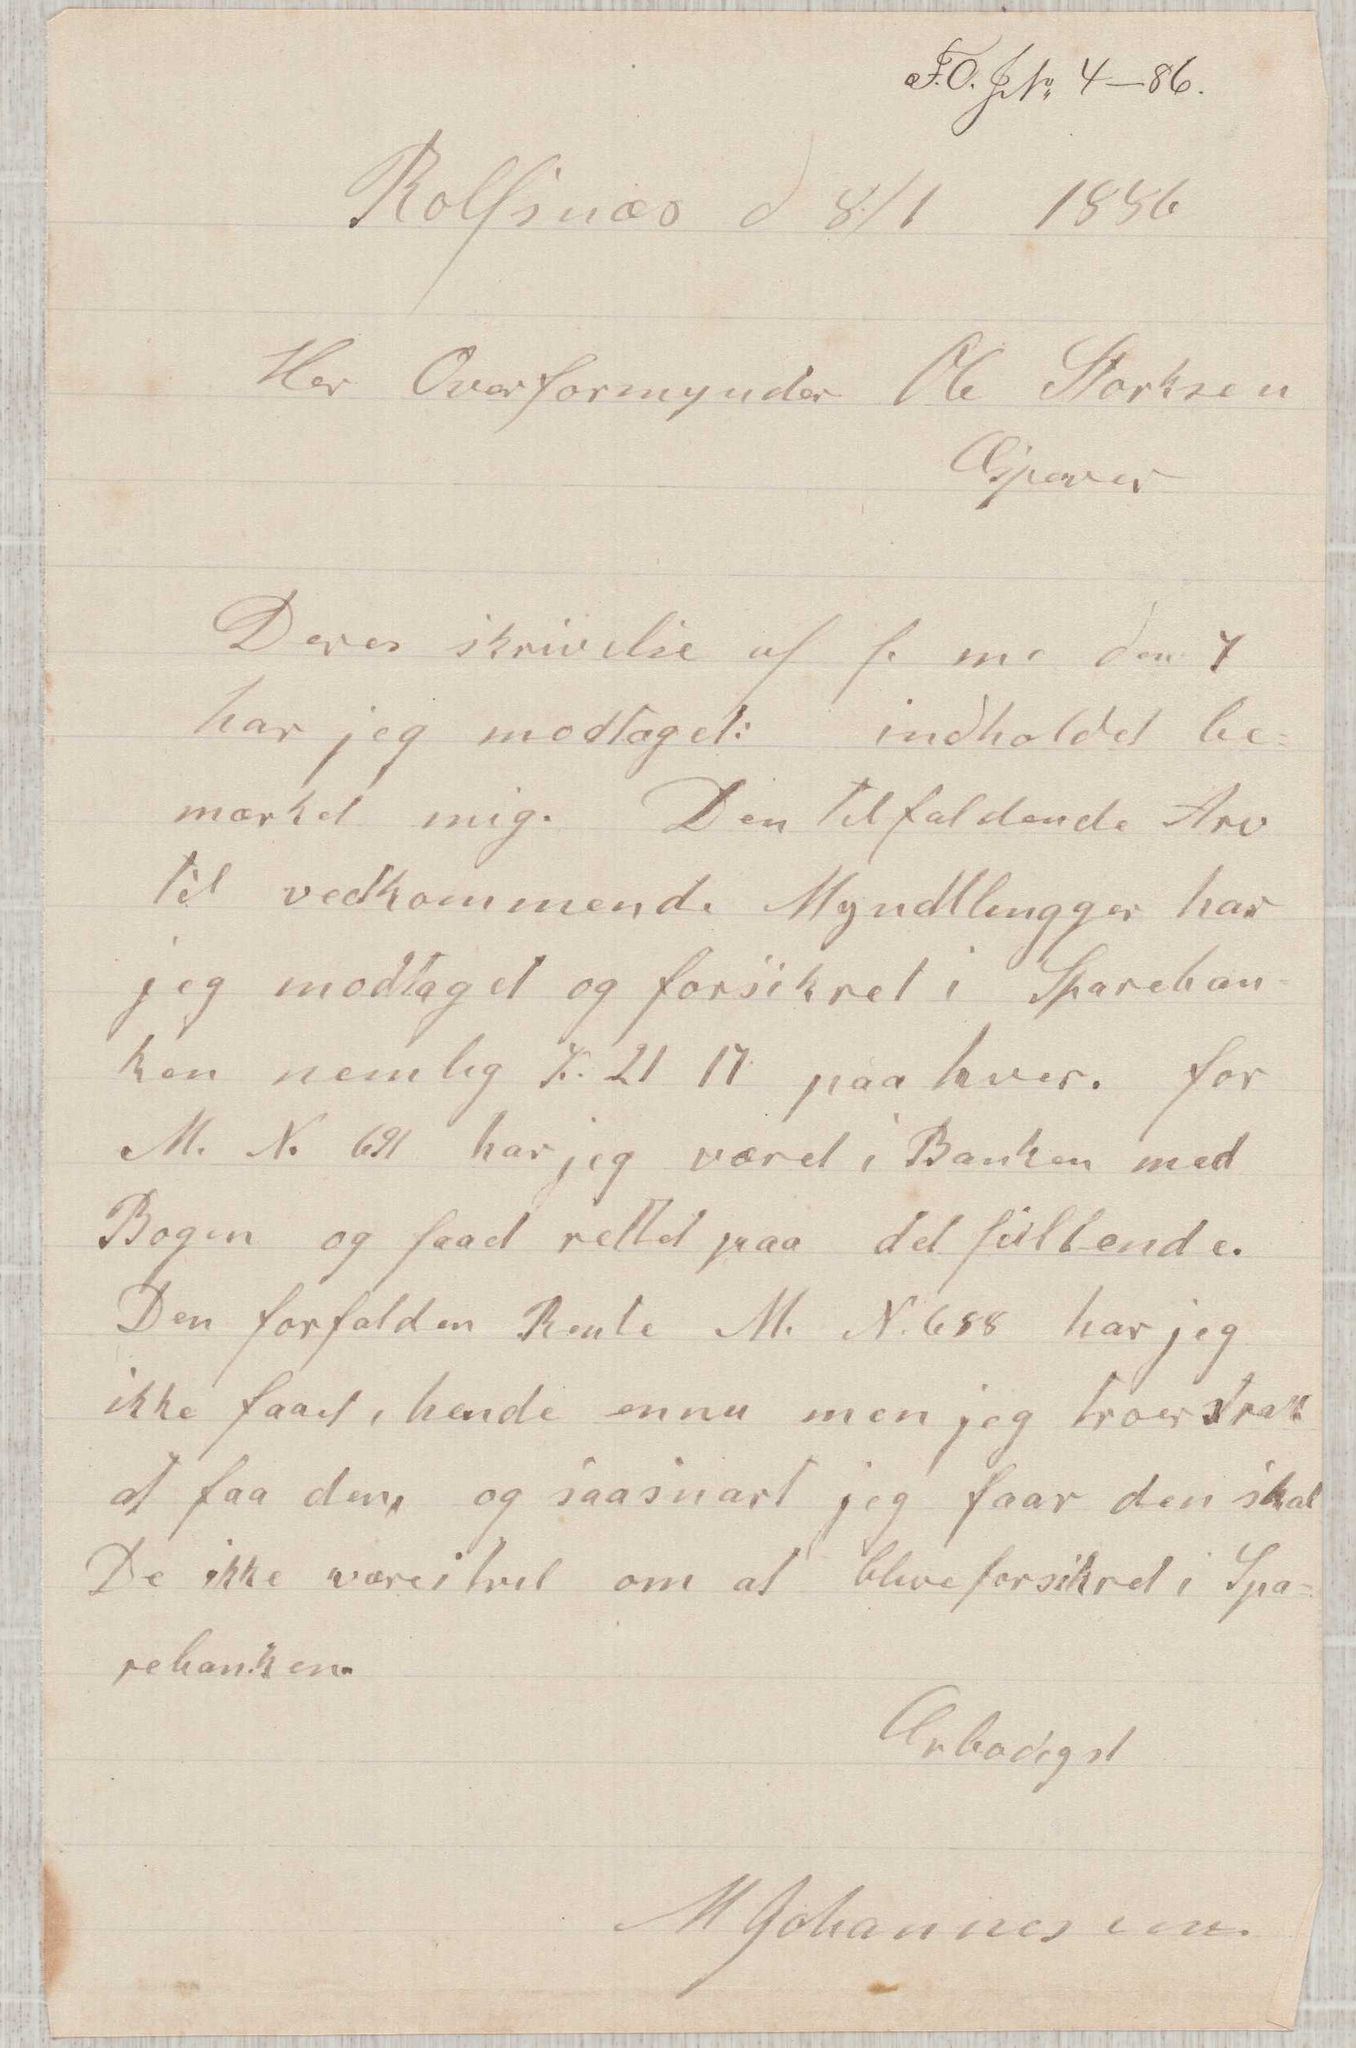 F.O. J.No 4-86.
Rolfsnæs d 8/1 1886
Her Overformynder Ole Storksen
Espever
Deres skrivelse af f. m. den 7
har jeg modtaget: indholdet be=
mærket mig. Den tilfaldende Arv
til vedkommende Myndtlingger har
jeg modtaget og forsikret i Spareban-
ken nemlig K. 21 17 paa hver. for
M. N. 691 har jeg været i Banken med
Bogen og faaet rettet paa det feillende.
Den forfalden Rente M. N. 688 har jeg
ikke faaet, hende ennu men jeg troer strax
at faa den, og saasnart jeg faar den skal
De ikke være i tvil om at blive forsikret i Spa=
rebanken.
Ærbødigst
M Johannessen.